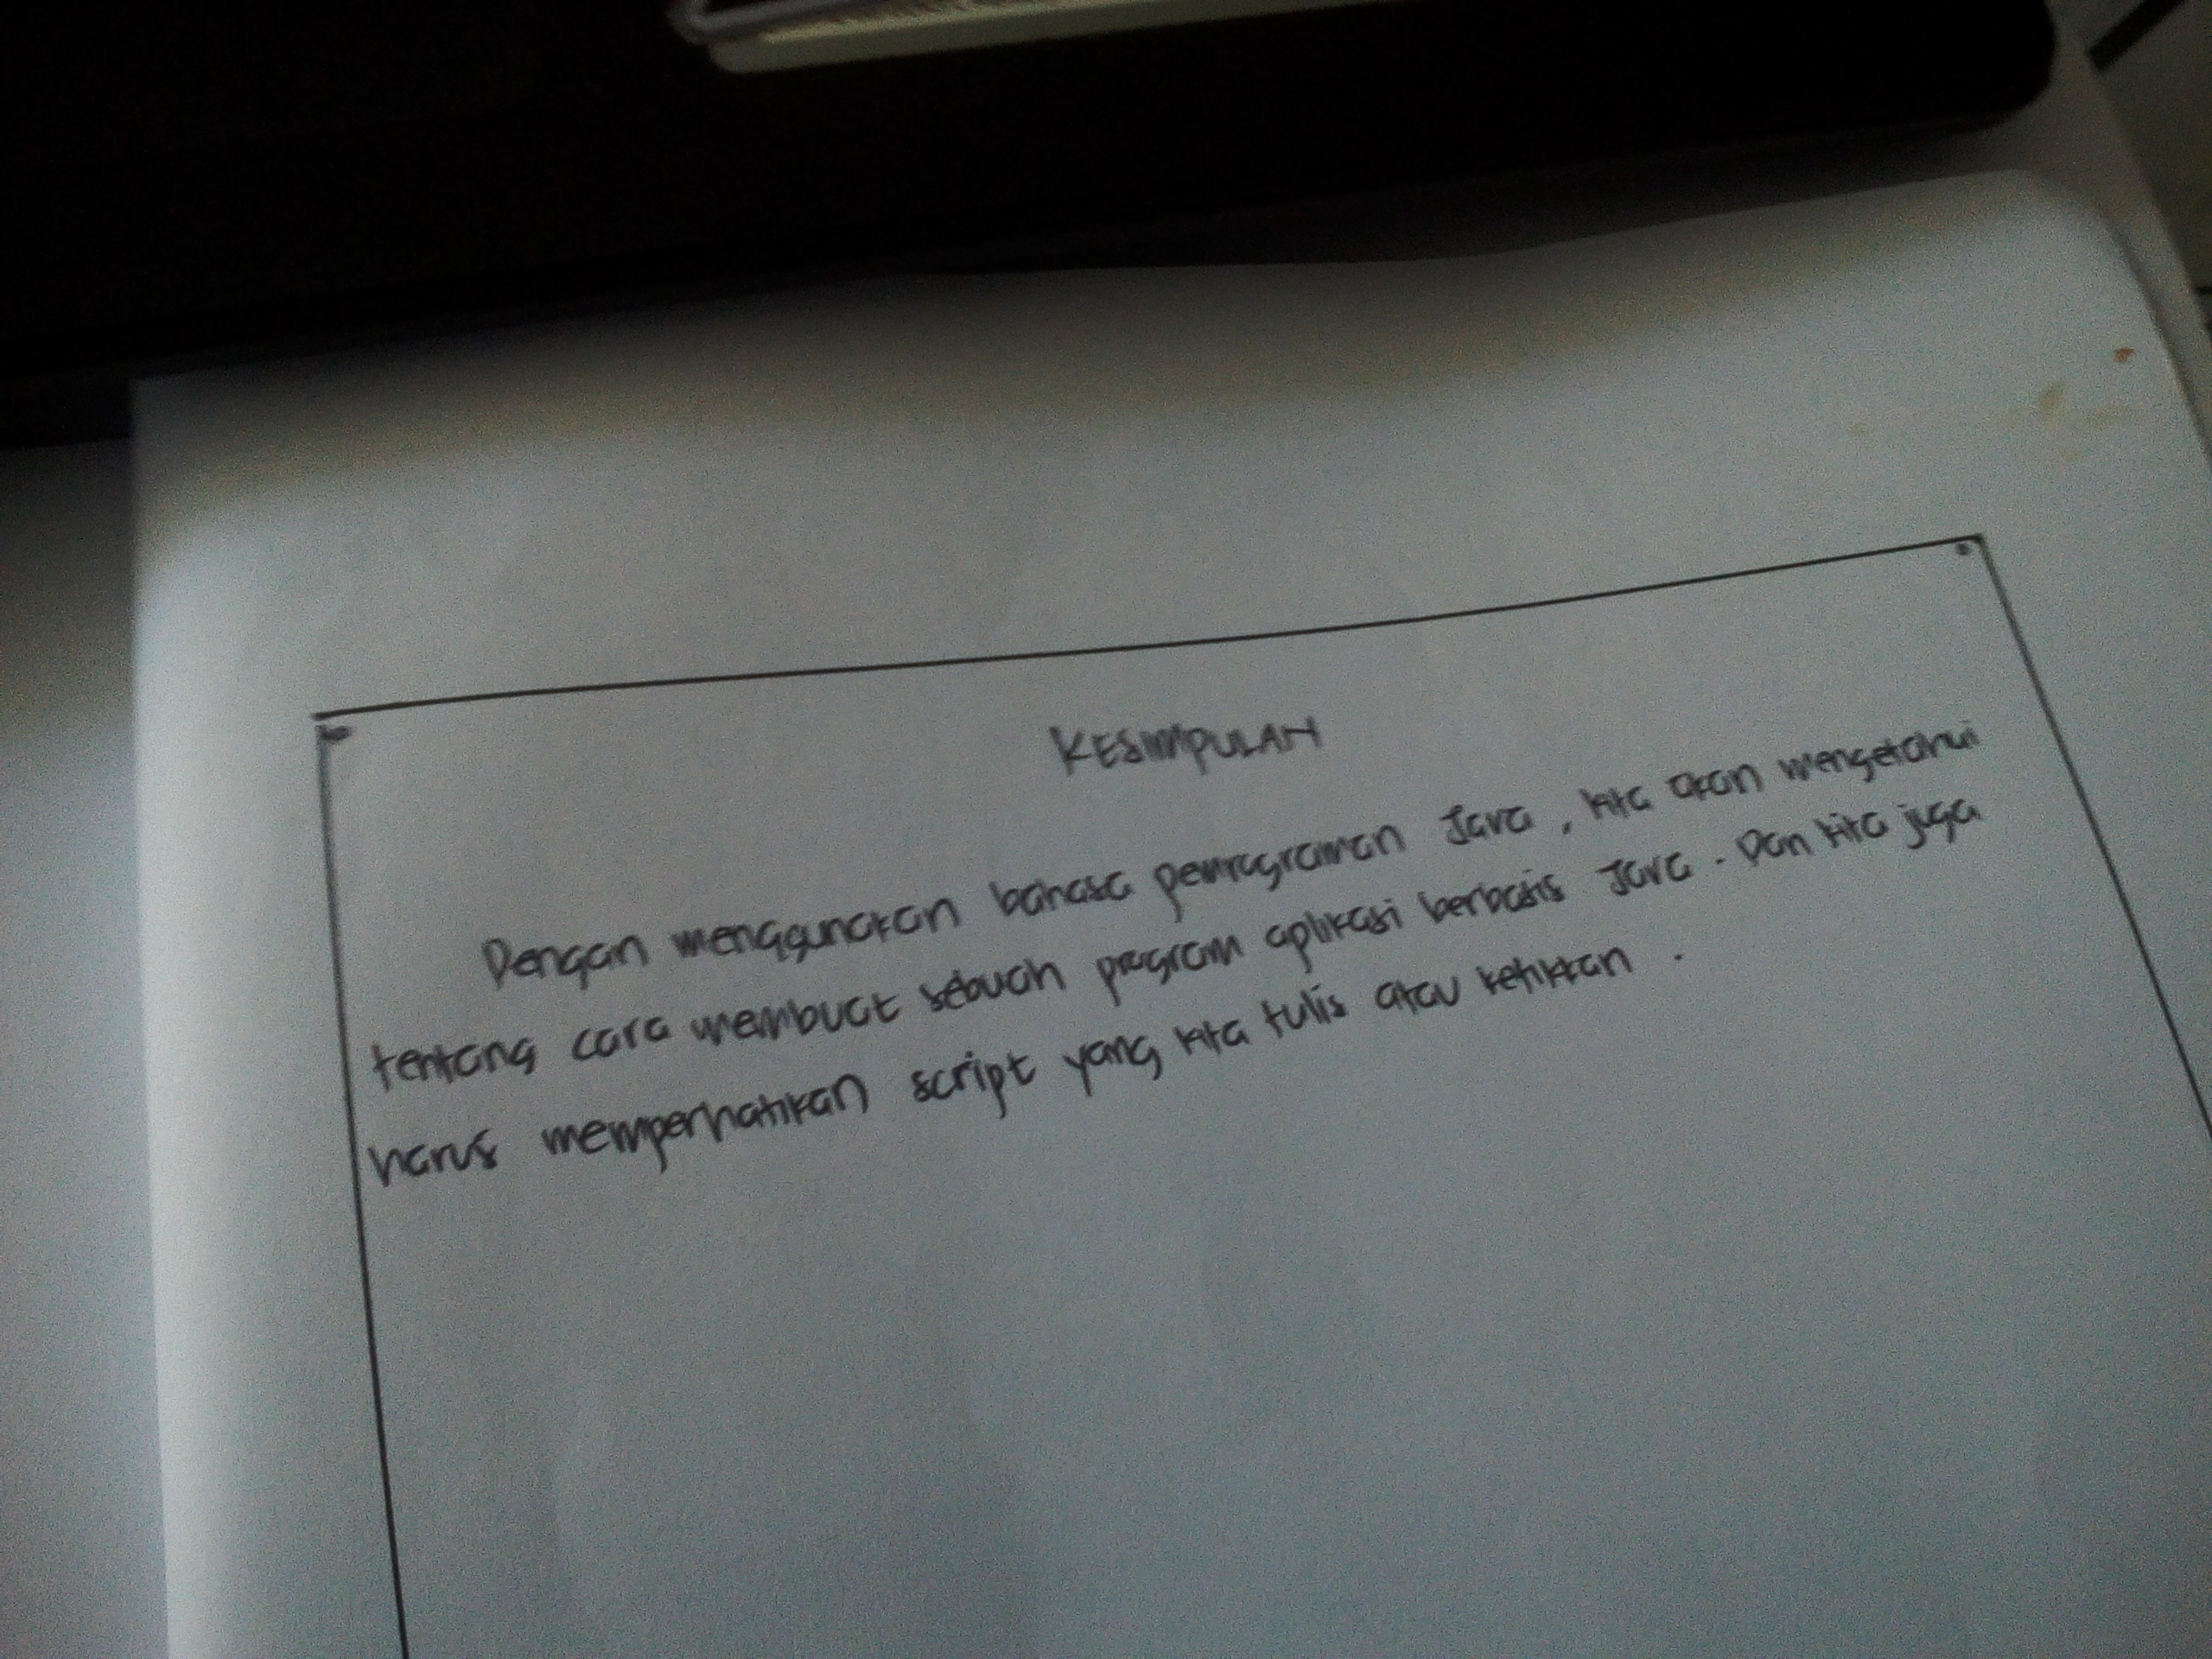 KESIMPULAN
Dengan menggunakan bahasa pemrograman Java, kita akan mengetahui
tentang cara membuat sebuah program aplikasi berbasis Java. Dan kita juga
harus memperhatikan script yang kita tulis atau ketikkan.